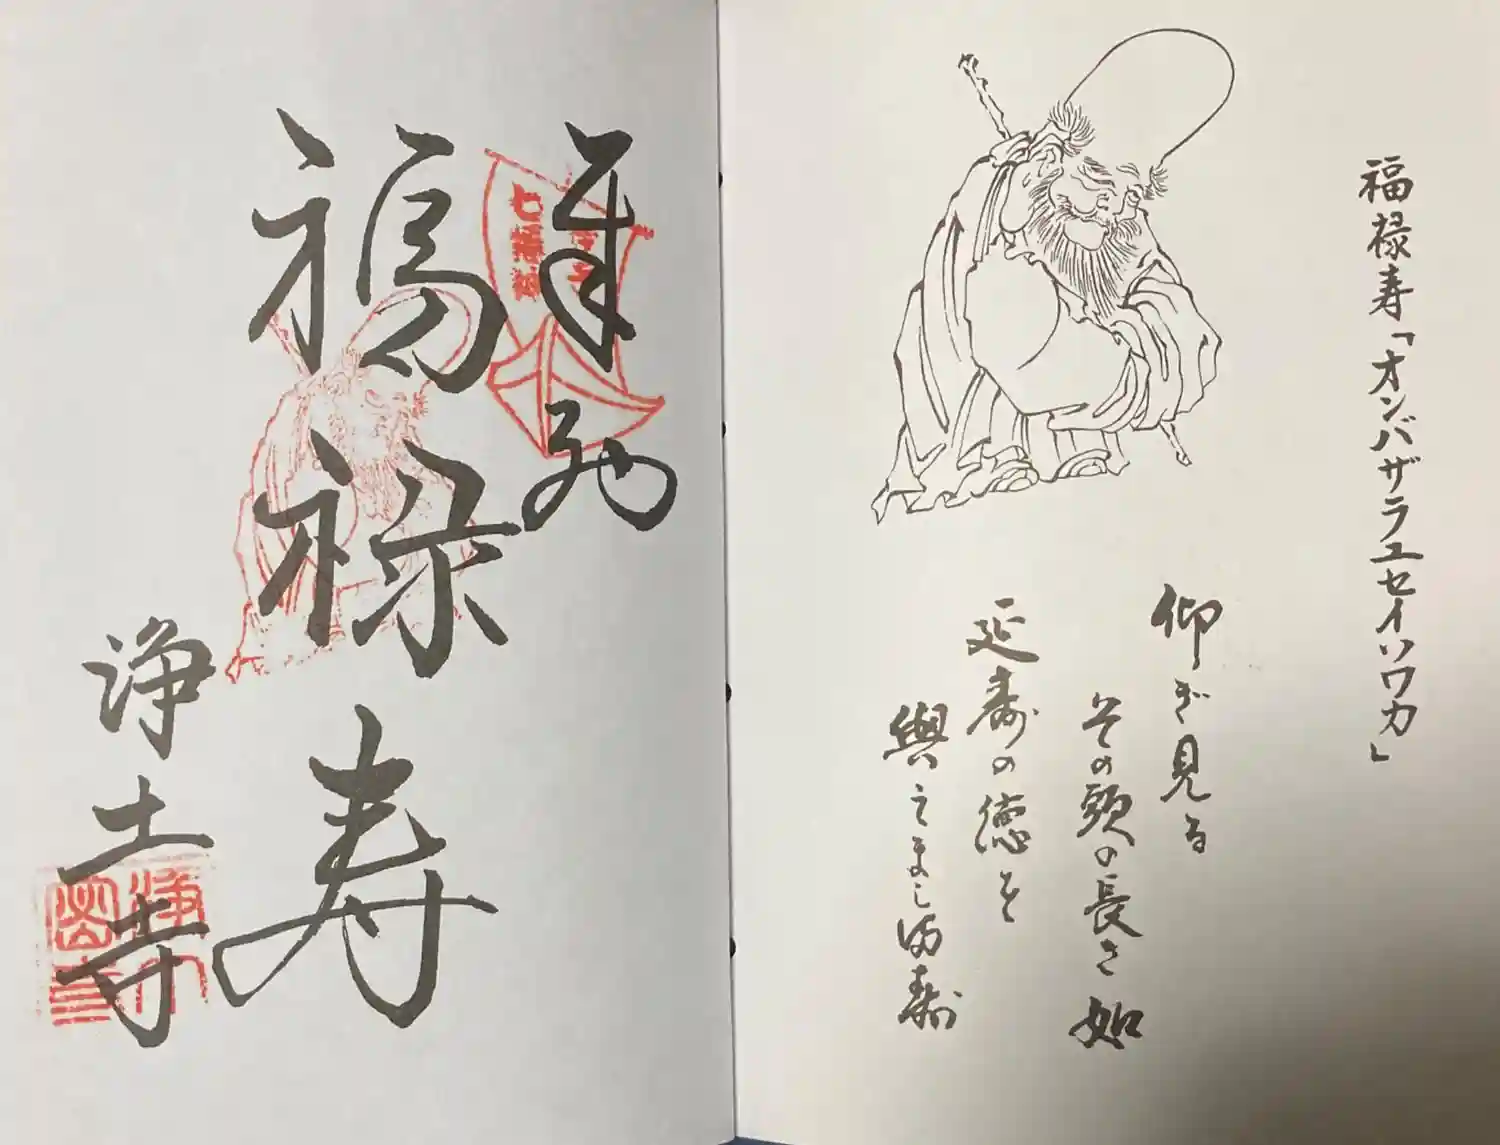 福禄寿「オンバザラユセイソワカ」
仰ぎ見る
その頭の長き如
延寿の徳を
與えまし満寿
七福神
福禄寿
浄土寺